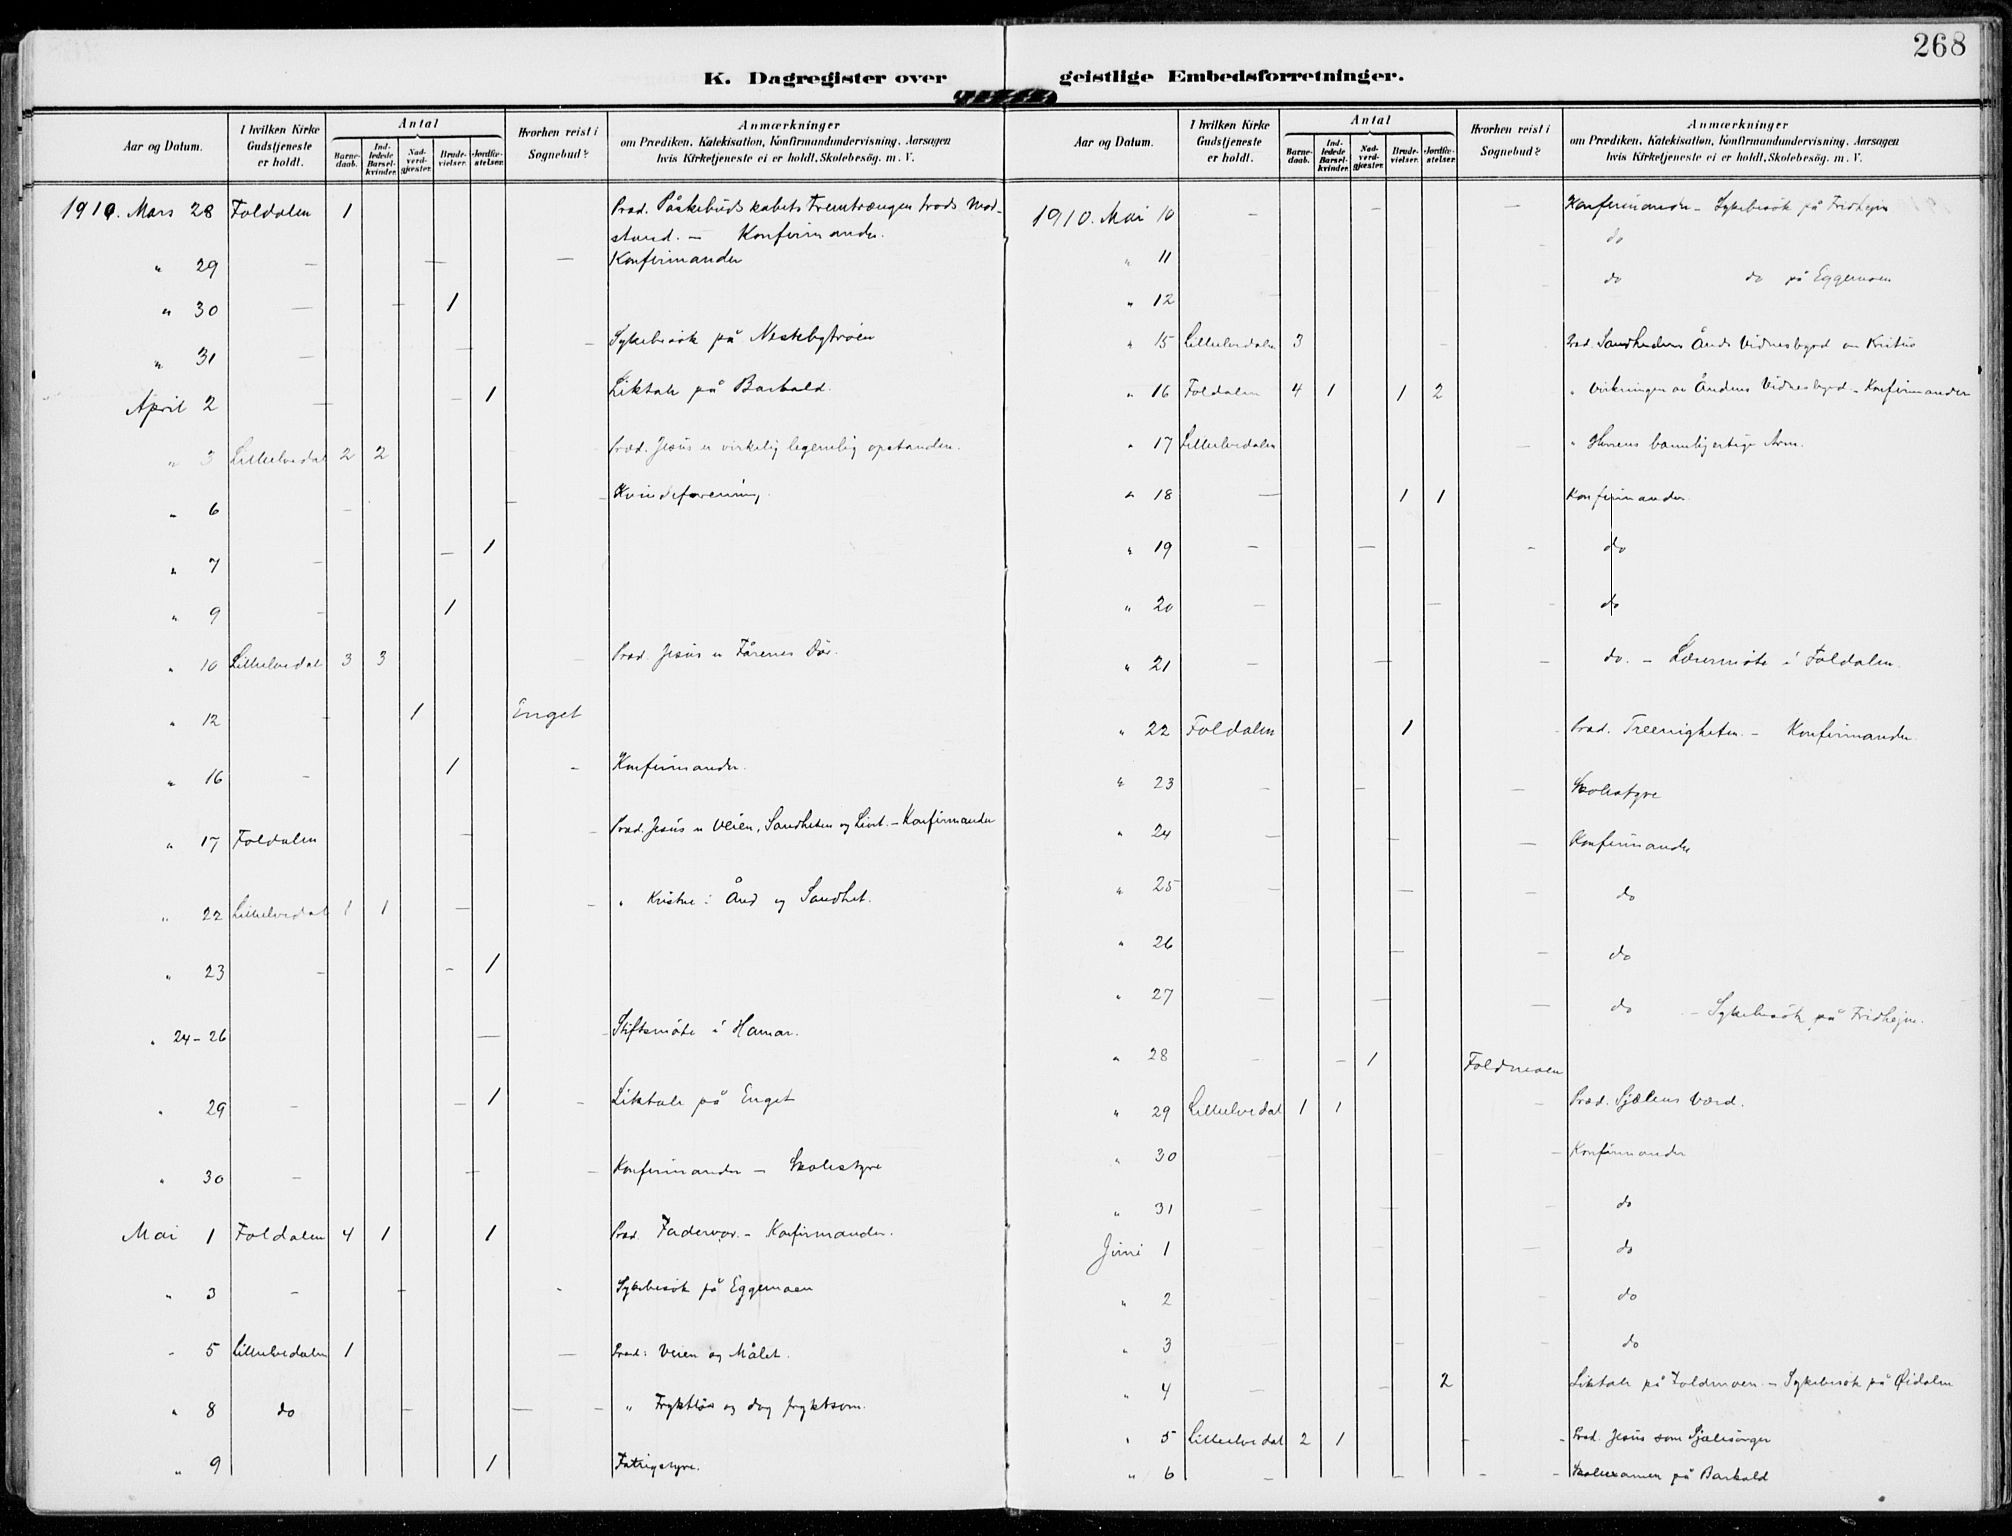 268
K. Dagregister over geistlige Embedsforretninger.
Aar og Datum. I hvilken Kirke Gudstjeneste er holdt. Antal Barnedaab. Indledede Barselkvinder. Nadverdgjester. Brudevielser. Jordfæstelser. Hvorhen reist i Sognebud? Anmærkninger om Prædiken, Katekisation, Konfirmandundervisning, Aarsagen hvis Kirketjeneste ei er holdt, Skolebesög. m. V.
1910. Mars 28 Foldalen 1 Præd. Påskebudskabets Fremtrængen trods Mod-
stand. — Konfirmander.
" 29 — — — Konfirmander
" 30 — — 1
" 31 — — Sykebesøk på
April 2 — — 1 Liktale på Barkald.
" 3 Lilleelvedal 2 2 Præd. Jesus er virkelig legemlig opstanden.
" 6 — — — Kvindeforening.
" 7 — — 1
" 9 — 1
" 10 Lilleelvedal 3 3 — Præd. Jesus er Fårenes Dør.
" 12 — 1 Enget
" 16 — 1 — Konfirmander.
" 17 Foldalen — — Præd. Jesus er Veien, Sandheten og Livet. — Konfirmander
" 22 Lilleelvedal 1 1 — — " Kristne i Ånd og Sandhet.
" 23 — — 1
" 24–26 — Stiftsmøte i Hamar.
" 29 — — 1 — Liktale på Enget
" 30 — — — Konfirmander — Skolestyre
Mai 1 Foldalen 4 1 1 Præd. Fadervor. — Konfirmander.
" 3 — — - Sykebesøk på Eggemoen
" 5 Lilleelvedalen 1 — Præd: Veien og Målet.
" 8 do — — — " Frygtløs og dog frygtsom.
" 9 1 Fatigstyre.
Aar og Datum. I hvilken Kirke Gudstjeneste er holdt. Antal Barnedaab. Indledede Barselkvinder. Nadverdgjester. Brudevielser. Jordfæstelser. Hvorhen reist i Sognebud? Anmærkninger om Prædiken, Katekisation, Konfirmandundervisning, Aarsagen hvis Kirketjeneste ei er holdt, Skolebesög. m. V.
1910. Mai 10 — — — Konfirmander — Sykebesøk på Fridhejm
" 11 do
" 12 do do på Eggemoen
" 15 Lilleelvedalen 3 Præd. Sandhedens Ånds Vidnesbyrd om Kristus
" 16 Foldalen 4 1 1 2 " Virkningen av Åndens Vidnesbyrd — Konfirmander
" 17 Lilleelvedalen — " Herrens barmhjertige Arm.
" 18 — 1 1 Konfirmander.
" 19 — — - do
" 20 — — do
" 21 — — — do. — Lærermøte i Foldalen.
" 22 Foldalen 1 Præd. Treenigheten. — Konfirmander.
" 23 — — — Skolestyre
" 24 — — — Konfirmander
" 25 — — — do
" 26 — — do
" 27 — — — do — Sykebesøk på Fridhejm.
" 28 — — 1 Foldmoen
" 29 Lilleelvedal 1 1 Præd. Sjælens Værd.
" 30 — — Konfirmander
" 31 — — do
Juni 1 — — — do
" 2 — — — do
" 3 — — — do
" 4 — — 2 Liktale på Foldmoen. — Sykebesøk på Øidalen
" 5 Lilleelvedal 2 1 - - Præd. Jesus som Sjælesørger
" 6 — — - - Skoleexamen på Barkald